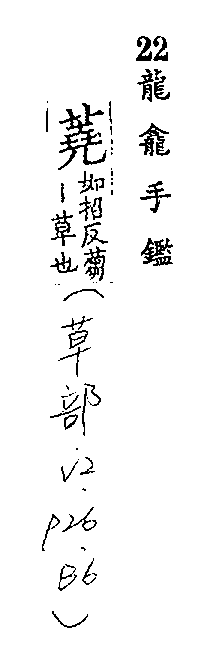 22龍龕手鑑
如招反蒭
｜草也
(草部.V2.P26.B6)